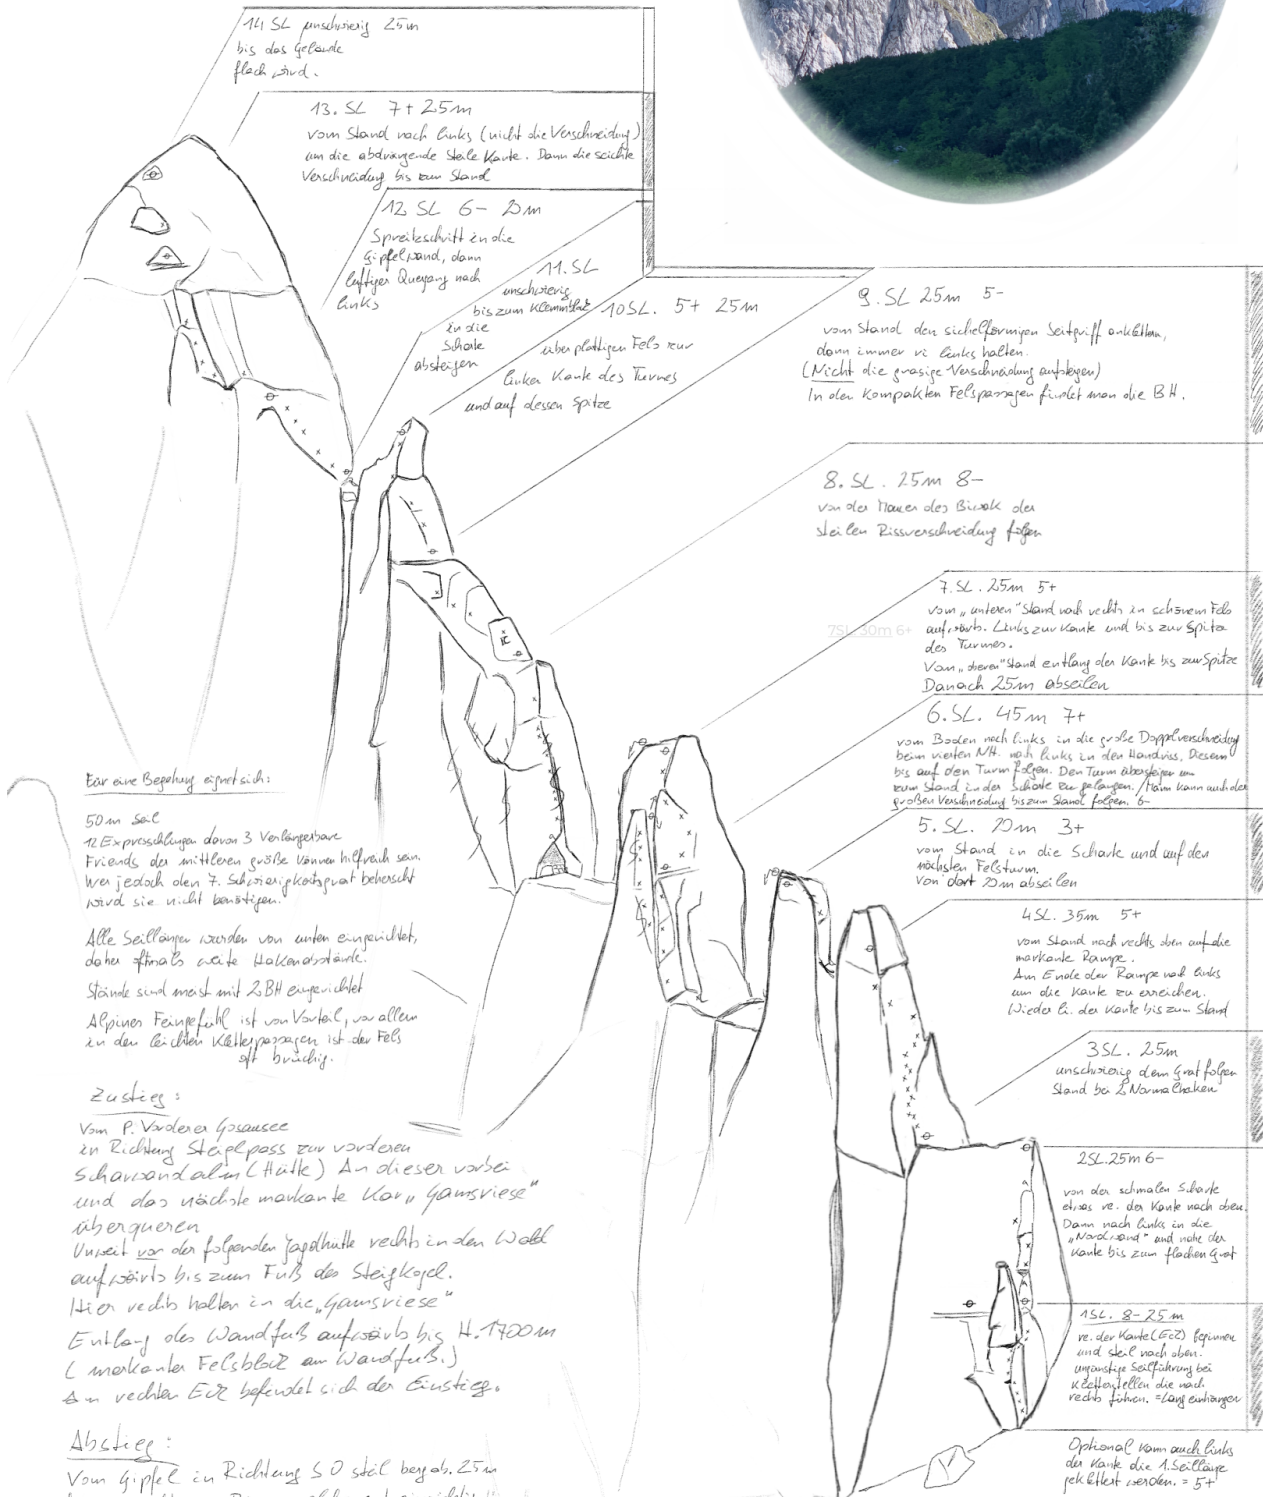 14 SL unschwierig 25m
bis das Gelände
flach wird.
13. SL 7+ 25m
vom Stand nach links (nicht die Verschneidung)
um die abdrängende steile Kante. Dann die seichte
Verschneidung bis zum Stand
12 SL 6- 20m
Spreitzschritt in die
Gipfelwand, dann
luftiger Quergang nach
links
11. SL
unschwierig
bis zum Klemmblock
in die
Scharte
absteigen
10 SL. 5+ 25m
über plattigen Fels zur
linken Kante des Turmes
und auf dessen Spitze
9. SL 25m 5-
vom Stand den sichelförmigen Seitgriff anklettern,
dann immer links halten.
(Nicht die grasige Verschneidung aufsteigen)
In den kompakten Felspassagen findet man die BH.
8. SL. 25m 8-
von der Mauer des Biwak der
steilen Rissverschneidung folgen
7SL. 30m 6+
7. SL. 25m 5+
vom „unteren" Stand nach rechts in schönem Fels
aufwärts. Links zur Kante und bis zur Spitze
des Turmes.
Vom „oberen" Stand entlang der Kante bis zur Spitze
Danach 25m abseilen
6. SL. 45m 7+
vom Boden nach links in die große Doppelverschneidung
beim vierten NH. nach links in den Handriss. Diesem
bis auf den Turm folgen. Den Turm übersteigen um
zum Stand in der Scharte zu gelangen. / Mann kann auch der
großen Verschneidung bis zum Stand folgen. 6-
5. SL. 20m 3+
vom Stand in die Scharte und auf den
nächsten Felsturm.
Von dort 20m abseilen
4SL. 35m 5+
vom Stand nach rechts oben auf die
markante Rampe.
Am Ende der Rampe nach links
um die Kante zu erreichen.
Wieder li. der Kante bis zum Stand
3SL. 25m
unschwierig dem Grat folgen
Stand bei 2 Normalhaken
2SL. 25m 6-
von der schmalen Scharte
etwas re. der Kante nach oben.
Dann nach links in die
„Nordwand" und nahe der
Kante bis zum flachen Grat
1SL. 8- 25m
re. der Kante (Eck) beginnen
und steil nach oben.
ungünstige Seilführung bei
Kletterstellen die nach
rechts führen. = Lang einhängen
Optional kann auch links
der Kante die 1. Seillänge
geklettert werden. = 5+
Für eine Begehung eignet sich:
50m Seil
12 Expresschlingen davon 3 Verlängerbare
Friends der mittleren größe können hilfreich sein.
Wer jedoch den 7. Schwierigkeitsgrat beherscht
wird sie nicht benötigen.
Alle Seillängen wurden von unten eingerichtet,
daher oftmals weite Hakenabstände.
Stände sind meist mit 2BH eingerichtet
Alpines Feingefühl ist von Vorteil, vor allem
in den leichten Kletterpassagen ist der Fels
oft brüchig.
Zustieg:
Vom P. Vorderer Gosausee
in Richtung Steiglpass zur vorderen
Scharwandalm (Hütte) An dieser vorbei
und das nächste markante Kar „Gamsriese"
überqueren
Unweit vor der folgenden Jagdhütte rechts in den Wald
aufwärts bis zum Fuß des Steigkogel.
Hier rechts halten in die „Gamsriese"
Entlang des Wandfuß aufwärts bis H. 1700m
(markanter Felsblock am Wandfuß.)
Am rechten Eck befindet sich der Einstieg.
Abstieg:
Vom Gipfel in Richtung SO steil bergab. 25m